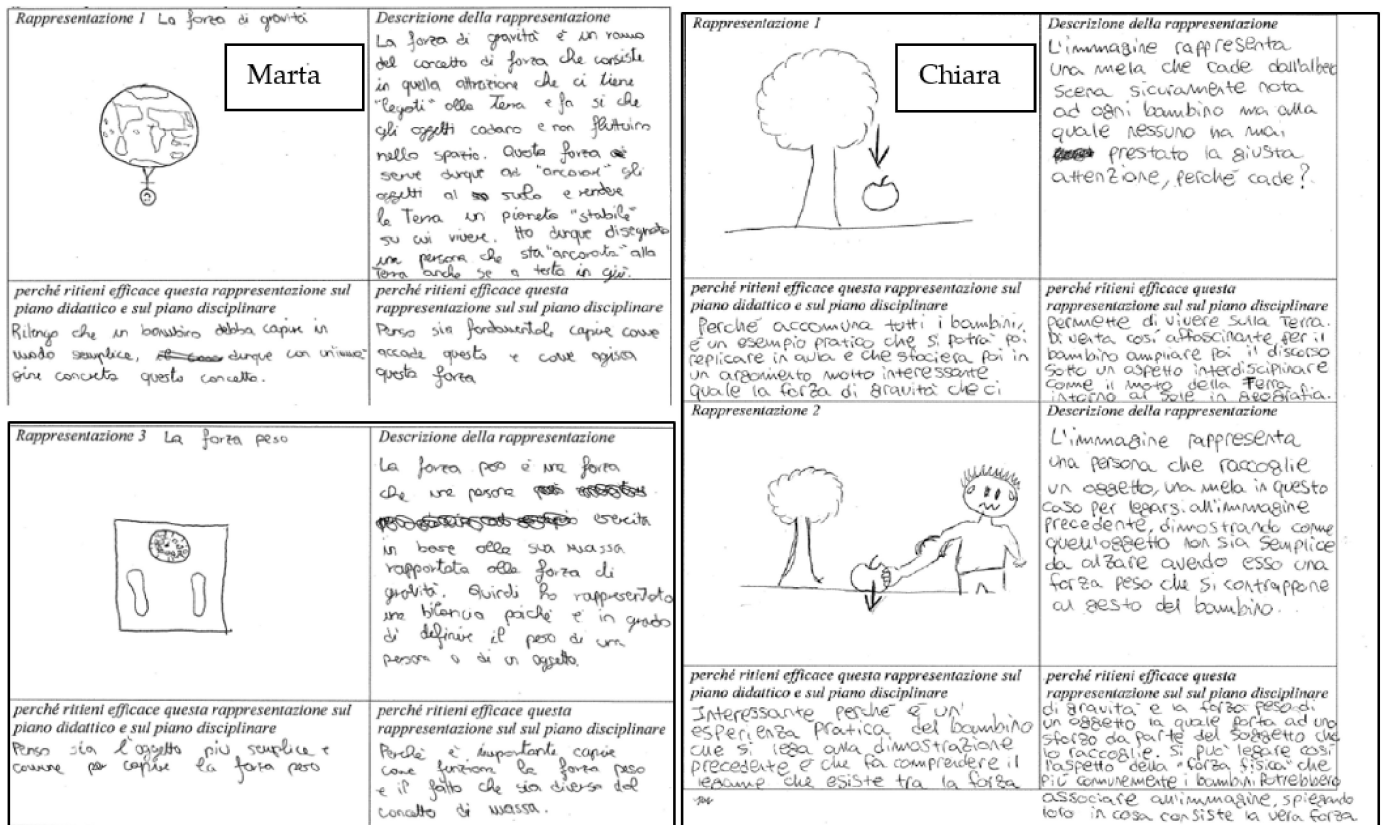 Rappresentazione 1 La forza di gravità
Marta
Descrizione della rappresentazione
La forza di gravità è un ramo
del concetto di forza che consiste
in quella attrazione che ci tiene
"legati" alla Terra e fa sì che
gli oggetti cadano e non fluttuino
nello spazio. Questa forza
serve dunque ad "ancorare" gli
oggetti al suolo e rendere
la Terra un pianeta "stabile"
su cui vivere. Ho dunque disegnato
una persona che sta "ancorata" alla
Terra anche se a testa in giù.
perché ritieni efficace questa rappresentazione sul
piano didattico e sul piano disciplinare
Ritengo che un bambino debba capire in
modo semplice, dunque con un'imma-
gine concreta questo concetto.
perché ritieni efficace questa
rappresentazione sul sul piano disciplinare
Penso sia fondamentale capire come
accade questo e come agisca
questa forza
Rappresentazione 3 La forza peso
Descrizione della rappresentazione
La forza peso è una forza
che una persona
esercita
in base alla sua massa
rapportata alla forza di
gravità. Quindi ho rappresentato
una bilancia poiché è in grado
di definire il peso di una
persona o di un oggetto.
perché ritieni efficace questa rappresentazione sul
piano didattico e sul piano disciplinare
Penso sia l'oggetto più semplice e
comune per capire la forza peso
perché ritieni efficace questa
rappresentazione sul sul piano disciplinare
Perché è importante capire
come funziona la forza peso
e il fatto che sia diversa dal
concetto di massa.
Rappresentazione 1
Chiara
Descrizione della rappresentazione
L'immagine rappresenta
una mela che cade dall'albero
scena sicuramente nota
ad ogni bambino ma alla
quale nessuno ha mai
prestato la giusta
attenzione, perché cade?
perché ritieni efficace questa rappresentazione sul
piano didattico e sul piano disciplinare
Perché accomuna tutti i bambini,
è un esempio pratico che si potrà poi
replicare in aula e che sfocierà poi in
un argomento molto interessante
quale la forza di gravità che ci
perché ritieni efficace questa
rappresentazione sul sul piano disciplinare
permette di vivere sulla Terra.
Diventa così affascinante per il
bambino ampliare poi il discorso
sotto un aspetto interdisciplinare
come il moto della Terra
intorno al Sole in geografia.
Rappresentazione 2
Descrizione della rappresentazione
L'immagine rappresenta
una persona che raccoglie
un oggetto, una mela in questo
caso per legarsi all'immagine
precedente, dimostrando come
quell'oggetto non sia semplice
da alzare avendo esso una
forza peso che si contrappone
al gesto del bambino.
perché ritieni efficace questa rappresentazione sul
piano didattico e sul piano disciplinare
Interessante perché è un'
esperienza pratica del bambino
che si lega alla dimostrazione
precedente e che fa comprendere il
legame che esiste tra la forza
perché ritieni efficace questa
rappresentazione sul sul piano disciplinare
di gravità e la forza peso di
un oggetto la quale porta ad uno
sforzo da parte del soggetto che
lo raccoglie. Si può legare così
l'aspetto della "forza fisica" che
più comunemente i bambini potrebbero
associare all'immagine, spiegando
loro in cosa consiste la vera forza